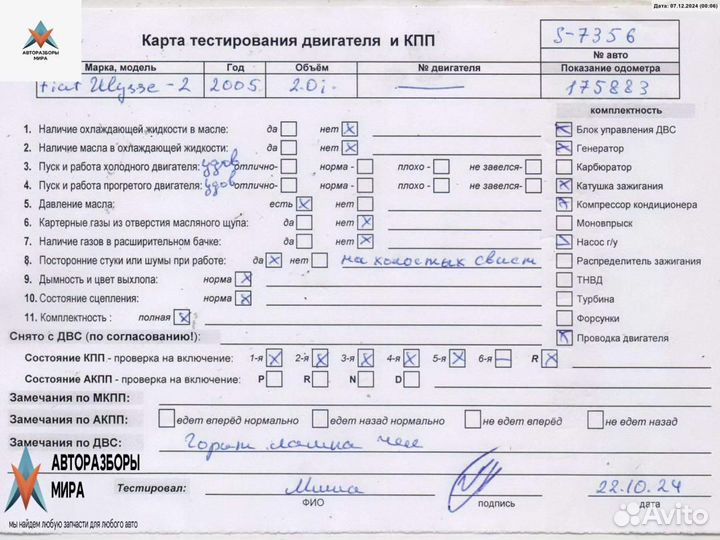 Дата: 07.12.2024 (00:06)
АВТОРАЗБОРЫ
МИРА
Карта тестирования двигателя и КПП
S-7356
№ авто
Марка, модель Год Объём № двигателя Показание одометра
Fiat Ulysse-2 2005 2.0i. 175883
комплектность
1. Наличие охлаждающей жидкости в масле: да нет Блок управления ДВС
2. Наличие масла в охлаждающей жидкости: да нет Генератор
3. Пуск и работа холодного двигателя: удов отлично- норма - плохо - не завелся- Карбюратор
4. Пуск и работа прогретого двигателя: удов отлично- норма - плохо - не завелся- Катушка зажигания
5. Давление масла: есть нет Компрессор кондиционера
6. Картерные газы из отверстия масляного щупа: да нет Моновпрыск
7. Наличие газов в расширительном бачке: да нет Насос г/у
8. Посторонние стуки или шумы при работе: да нет на холостых свист Распределитель зажигания
9. Дымность и цвет выхлопа: норма ТНВД
10. Состояние сцепления: норма Турбина
11. Комплектность : полная Форсунки
Снято с ДВС (по согласованию!): Проводка двигателя
Состояние КПП - проверка на включение: 1-я 2-я 3-я 4-я 5-я 6-я R
Состояние АКПП - проверка на включение: P R N D
Замечания по МКПП:
Замечания по АКПП: едет вперёд нормально едет назад нормально не едет вперёд не едет назад
Замечания по ДВС: Горит лампа чек
АВТОРАЗБОРЫ
МИРА
Тестировал: Миша 22.10.24
ФИО подпись дата
мы найдем любую запчасти для любого авто
Avito